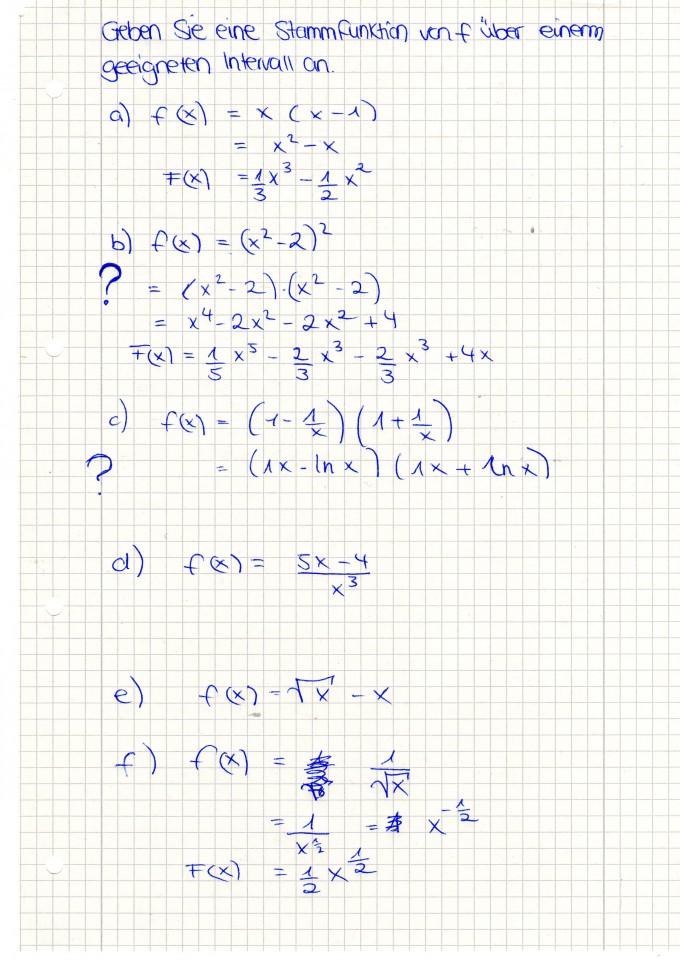 Geben Sie eine Stammfunktion von f über einem
geeigneten Intervall an.
a) f(x) = x (x-1)
= x² - x
F(x) = 1/3 x³ - 1/2 x²
b) f(x) = (x² - 2)²
? = (x² - 2)·(x² - 2)
= x⁴ - 2x² - 2x² + 4
F(x) = 1/5 x⁵ - 2/3 x³ - 2/3 x³ + 4x
c) f(x) = (1 - 1/x) (1 + 1/x)
? = (1x - ln x) (1x + ln x)
d) f(x) = (5x - 4)/x³
e) f(x) = √x - x
f) f(x) = 1/√x
= 1/x^(1/2) = x^(-1/2)
F(x) = 1/2 x^(1/2)